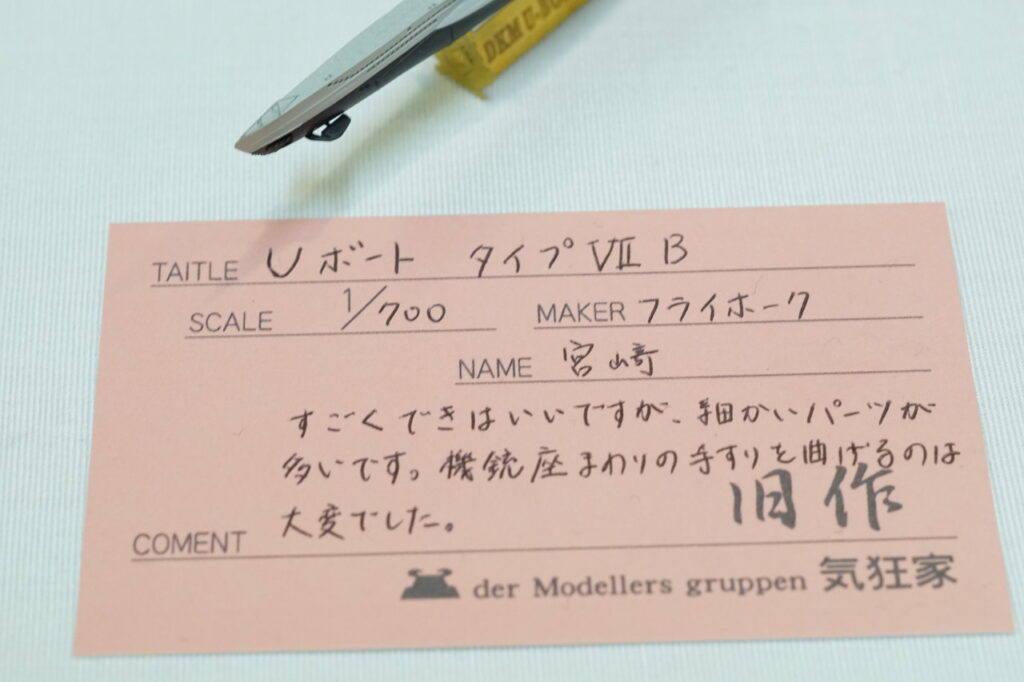 DKM U-BO
TAITLE Uボート タイプⅦB
SCALE 1/700 MAKER フライホーク
NAME 宮崎
すごくできはいいですが、細かいパーツが
多いです。機銃座まわりの手すりを曲げるのは
大変でした。
旧作
COMENT
der Modellers gruppen 気狂家